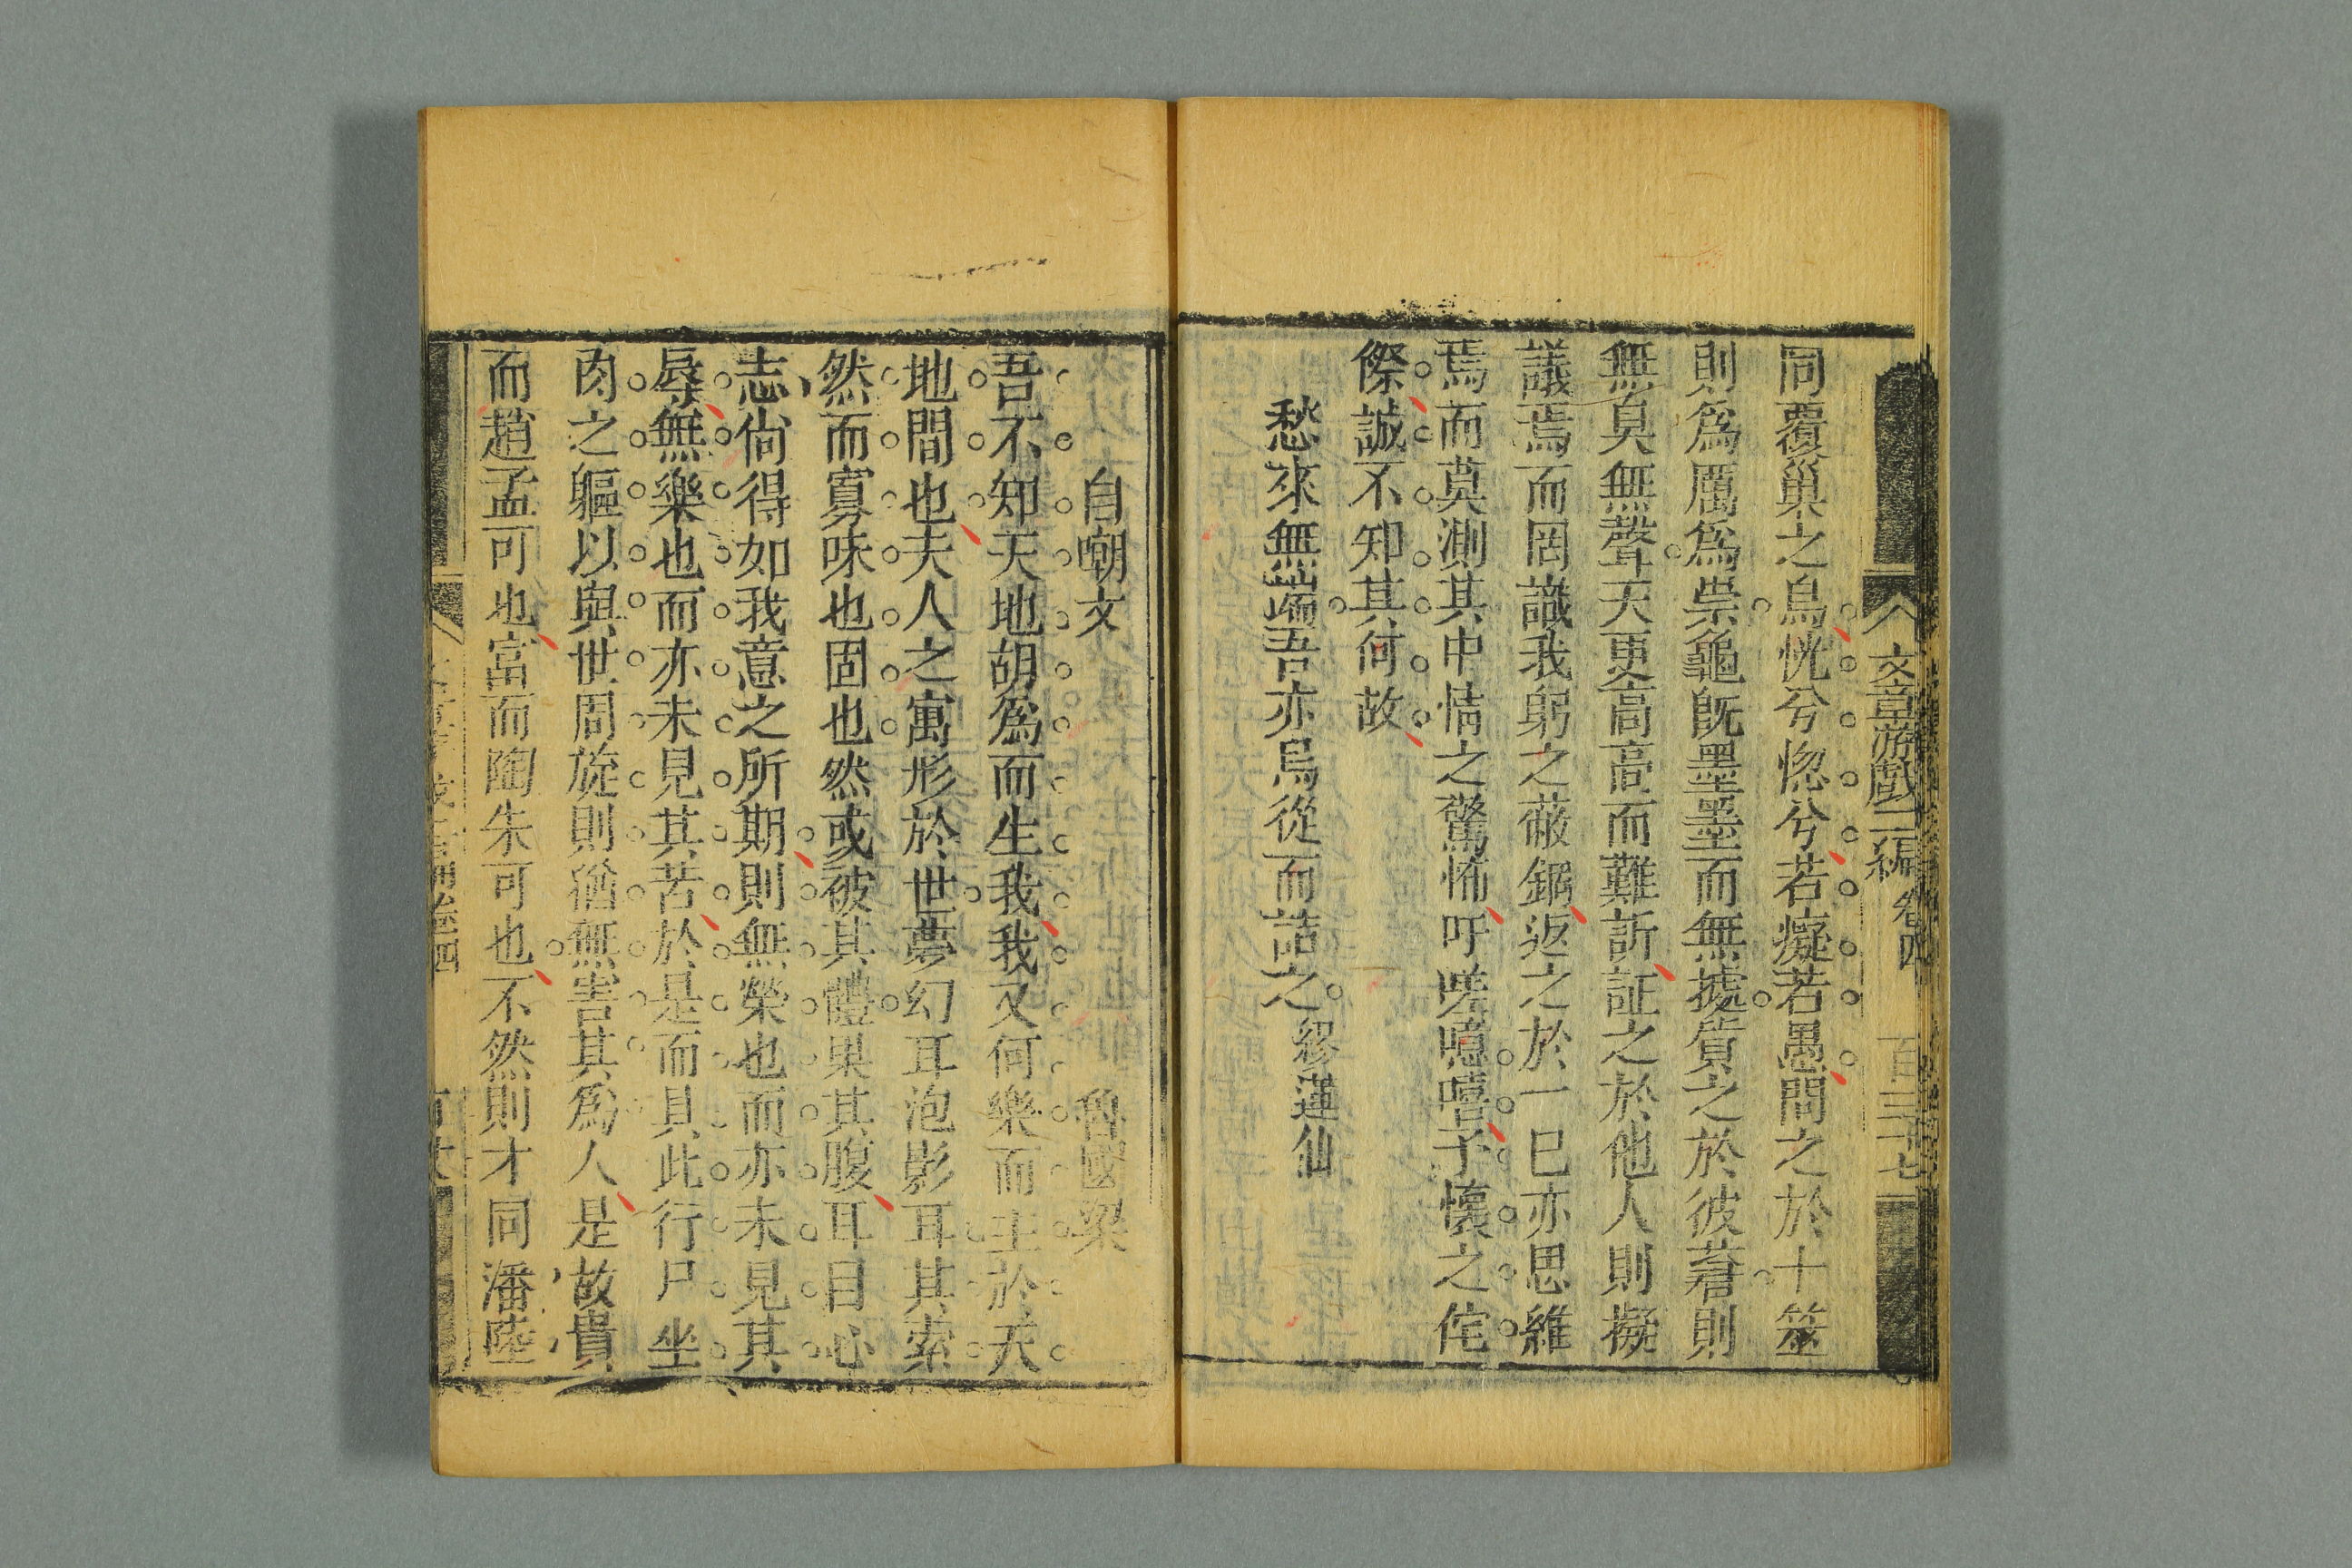 文章游戲二編 卷四 百三十七
同覆巢之鳥恍兮惚兮若癡若愚問之於十筮
則爲厲爲祟龜旣墨墨而無據質之於彼蒼則
無臭無聲天更高高而難訴証之於他人則擬
議焉而罔識我躬之蔽錮返之於一己亦思維
焉而莫測其中情之驚怖吁嗟噫嘻予懷之侘
傺誠不知其何故
愁來無端吾亦烏從而詰之 繆蓮仙
自嘲文 魯國梁
吾不知天地胡爲而生我我又何樂而生於天
地間也夫人之寓形於世夢幻耳泡影耳其索
然而寡味也固也然或彼其體果其腹耳目心
志尙得如我意之所期則無榮也而亦未見其
辱無樂也而亦未見其苦於是而具此行尸坐
肉之軀以與世周旋則猶無害其爲人是故貴
而趙孟可也富而陶朱可也不然則才同潘陸
卷四